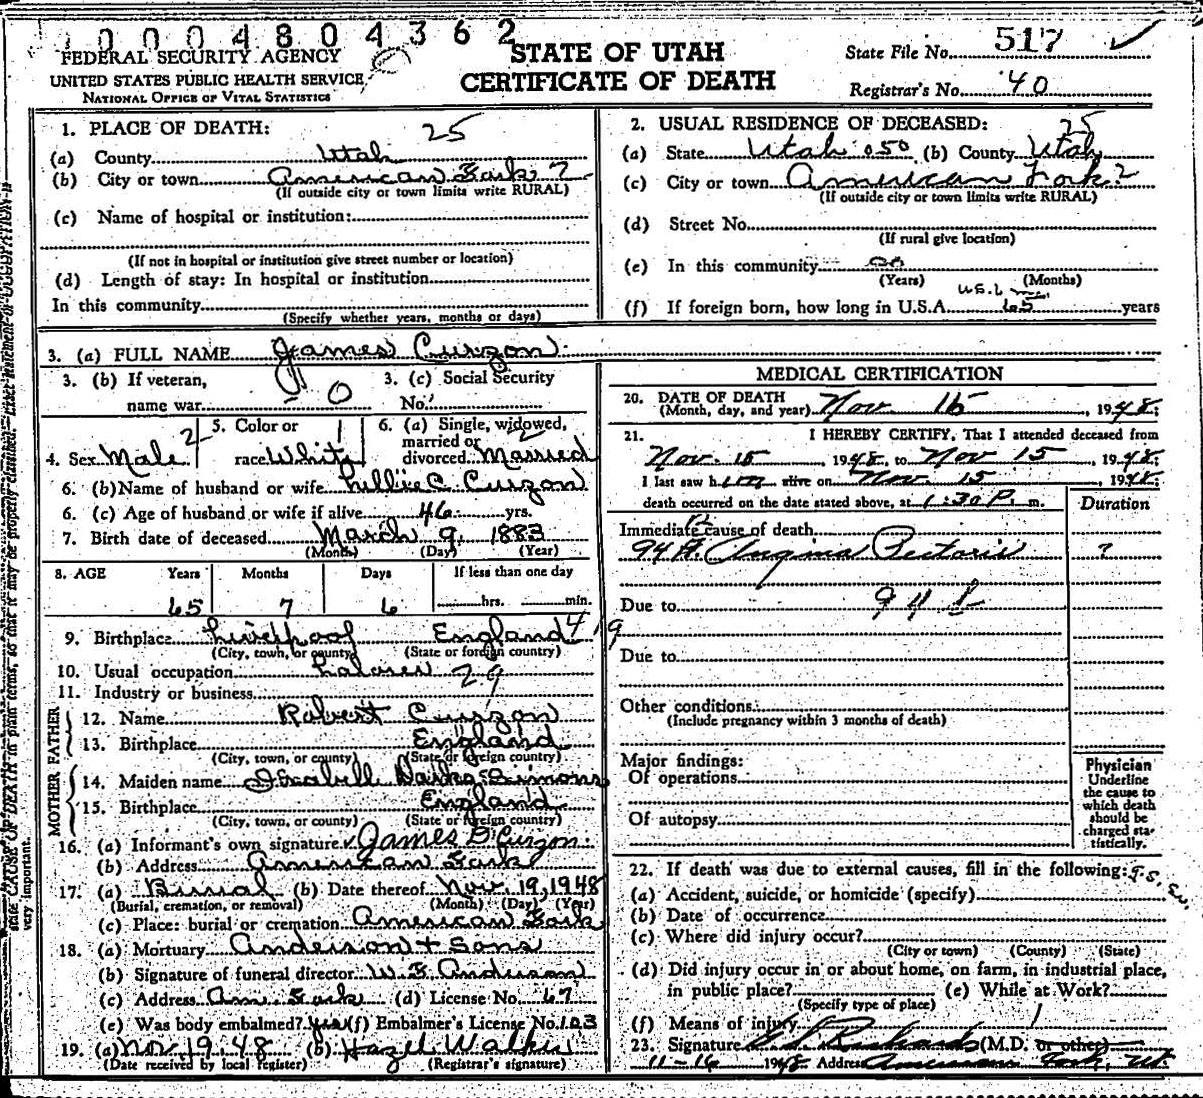 0 0 0 4 8 0 4 3 6 2
FEDERAL SECURITY AGENCY
UNITED STATES PUBLIC HEALTH SERVICE
NATIONAL OFFICE OF VITAL STATISTICS
STATE OF UTAH
CERTIFICATE OF DEATH
State File No. 517
Registrar's No. 40
1. PLACE OF DEATH: 25
(a) County Utah
(b) City or town American Fork 2
(If outside city or town limits write RURAL)
(c) Name of hospital or institution:
(If not in hospital or institution give street number or location)
(d) Length of stay: In hospital or institution
In this community
(Specify whether years, months or days)
2. USUAL RESIDENCE OF DECEASED: 25
(a) State Utah 050 (b) County Utah
(c) City or town American Fork 2
(If outside city or town limits write RURAL)
(d) Street No.
(If rural give location)
(e) In this community
(Years) (Months)
(f) If foreign born, how long in U.S.A. 65 years
3. (a) FULL NAME James Curzon
3. (b) If veteran, name war 0
3. (c) Social Security No.
4. Sex Male 2
5. Color or race White 1
6. (a) Single, widowed, married or divorced Married 2
6. (b) Name of husband or wife Lillie C. Curzon
6. (c) Age of husband or wife if alive 46 yrs.
7. Birth date of deceased March 9, 1883
(Month) (Day) (Year)
8. AGE Years Months Days If less than one day
65 7 6 hrs. min.
9. Birthplace Liverpool England 4 9
(City, town, or county) (State or foreign country)
10. Usual occupation Laborer 29
11. Industry or business
FATHER
12. Name Robert Curzon
13. Birthplace England
(City, town, or county) (State or foreign country)
MOTHER
14. Maiden name Isabell Simons
15. Birthplace England
(City, town, or county) (State or foreign country)
16. (a) Informant's own signature James D Curzon
(b) Address American Fork
17. (a) Burial (b) Date thereof Nov 19, 1948
(Burial, cremation, or removal) (Month) (Day) (Year)
(c) Place: burial or cremation American Fork
18. (a) Mortuary Anderson + Sons
(b) Signature of funeral director W. B. Anderson
(c) Address Am. Fork (d) License No. 67
(e) Was body embalmed? Yes (f) Embalmer's License No. 123
19. (a) Nov 19 48 (b) Hazel Walker
(Date received by local register) (Registrar's signature)
MEDICAL CERTIFICATION
20. DATE OF DEATH
(Month, day, and year) Nov. 15, 1948;
21. I HEREBY CERTIFY, That I attended deceased from
Nov. 15, 1948, to Nov 15, 1948;
I last saw him alive on Nov. 15, 1948;
death occurred on the date stated above, at 1:30 P. m.
Duration
Immediate cause of death
94 Angina Pectoris ?
Due to 94
Due to
Other conditions
(Include pregnancy within 3 months of death)
Major findings:
Of operations
Of autopsy
Physician
Underline
the cause to
which death
should be
charged sta-
tistically.
22. If death was due to external causes, fill in the following:
(a) Accident, suicide, or homicide (specify)
(b) Date of occurrence
(c) Where did injury occur?
(City or town) (County) (State)
(d) Did injury occur in or about home, on farm, in industrial place,
in public place? (e) While at Work?
(Specify type of place)
(f) Means of injury
23. Signature Richards (M.D. or other)
11-16 1948 Address American Fork, Ut.
state CAUSE OF DEATH in plain terms, so that it may be properly classified. Exact statement of OCCUPATION is
very important.